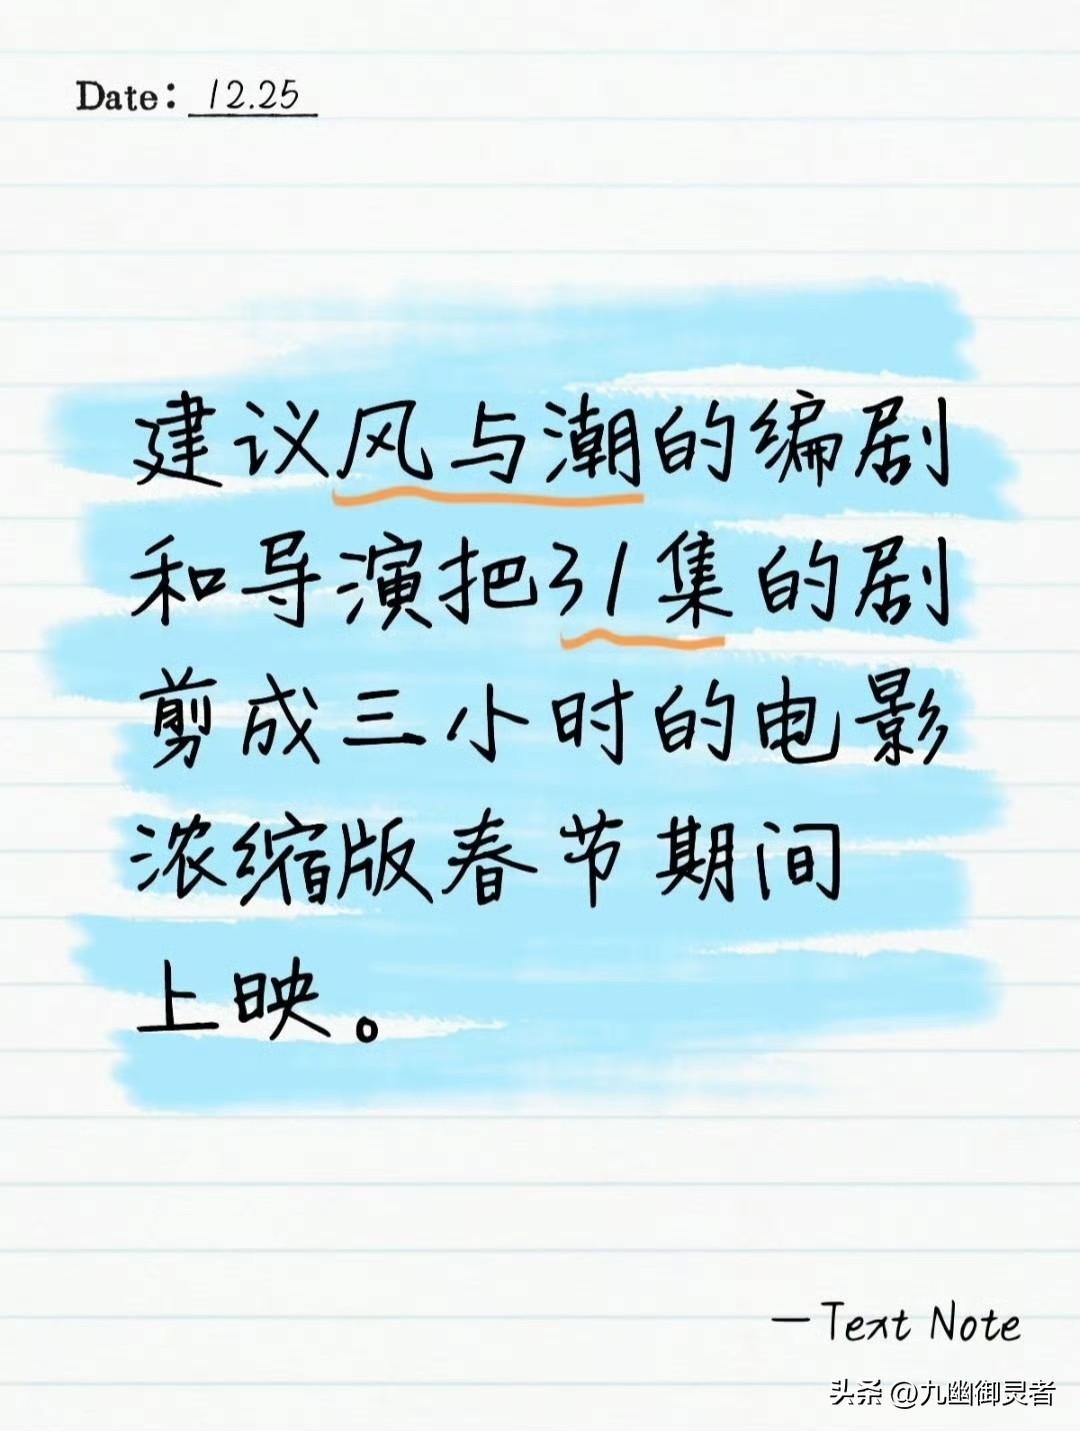 Date: 12.25
建议风与潮的编剧
和导演把31集的剧
剪成三小时的电影
浓缩版春节期间
上映。
—Text Note
头条 @九幽御灵者